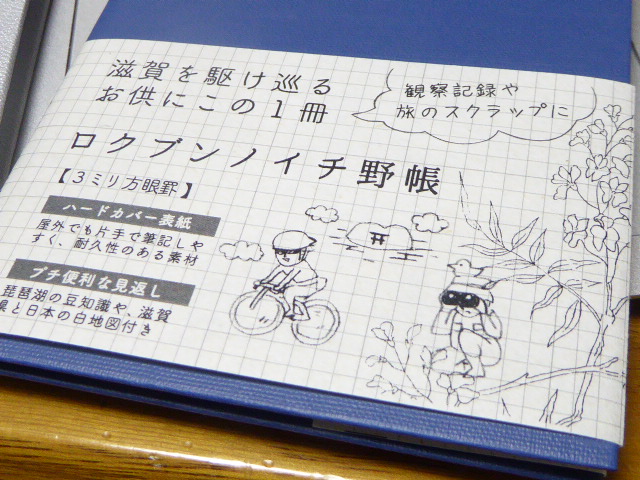 滋賀を駆け巡る
お供にこの1冊
観察記録や
旅のスクラップに
ロクブンノイチ野帳
【3ミリ方眼罫】
ハードカバー表紙
屋外でも片手で筆記しや
すく、耐久性のある素材
プチ便利な見返し
琵琶湖の豆知識や、滋賀
県と日本の白地図付き